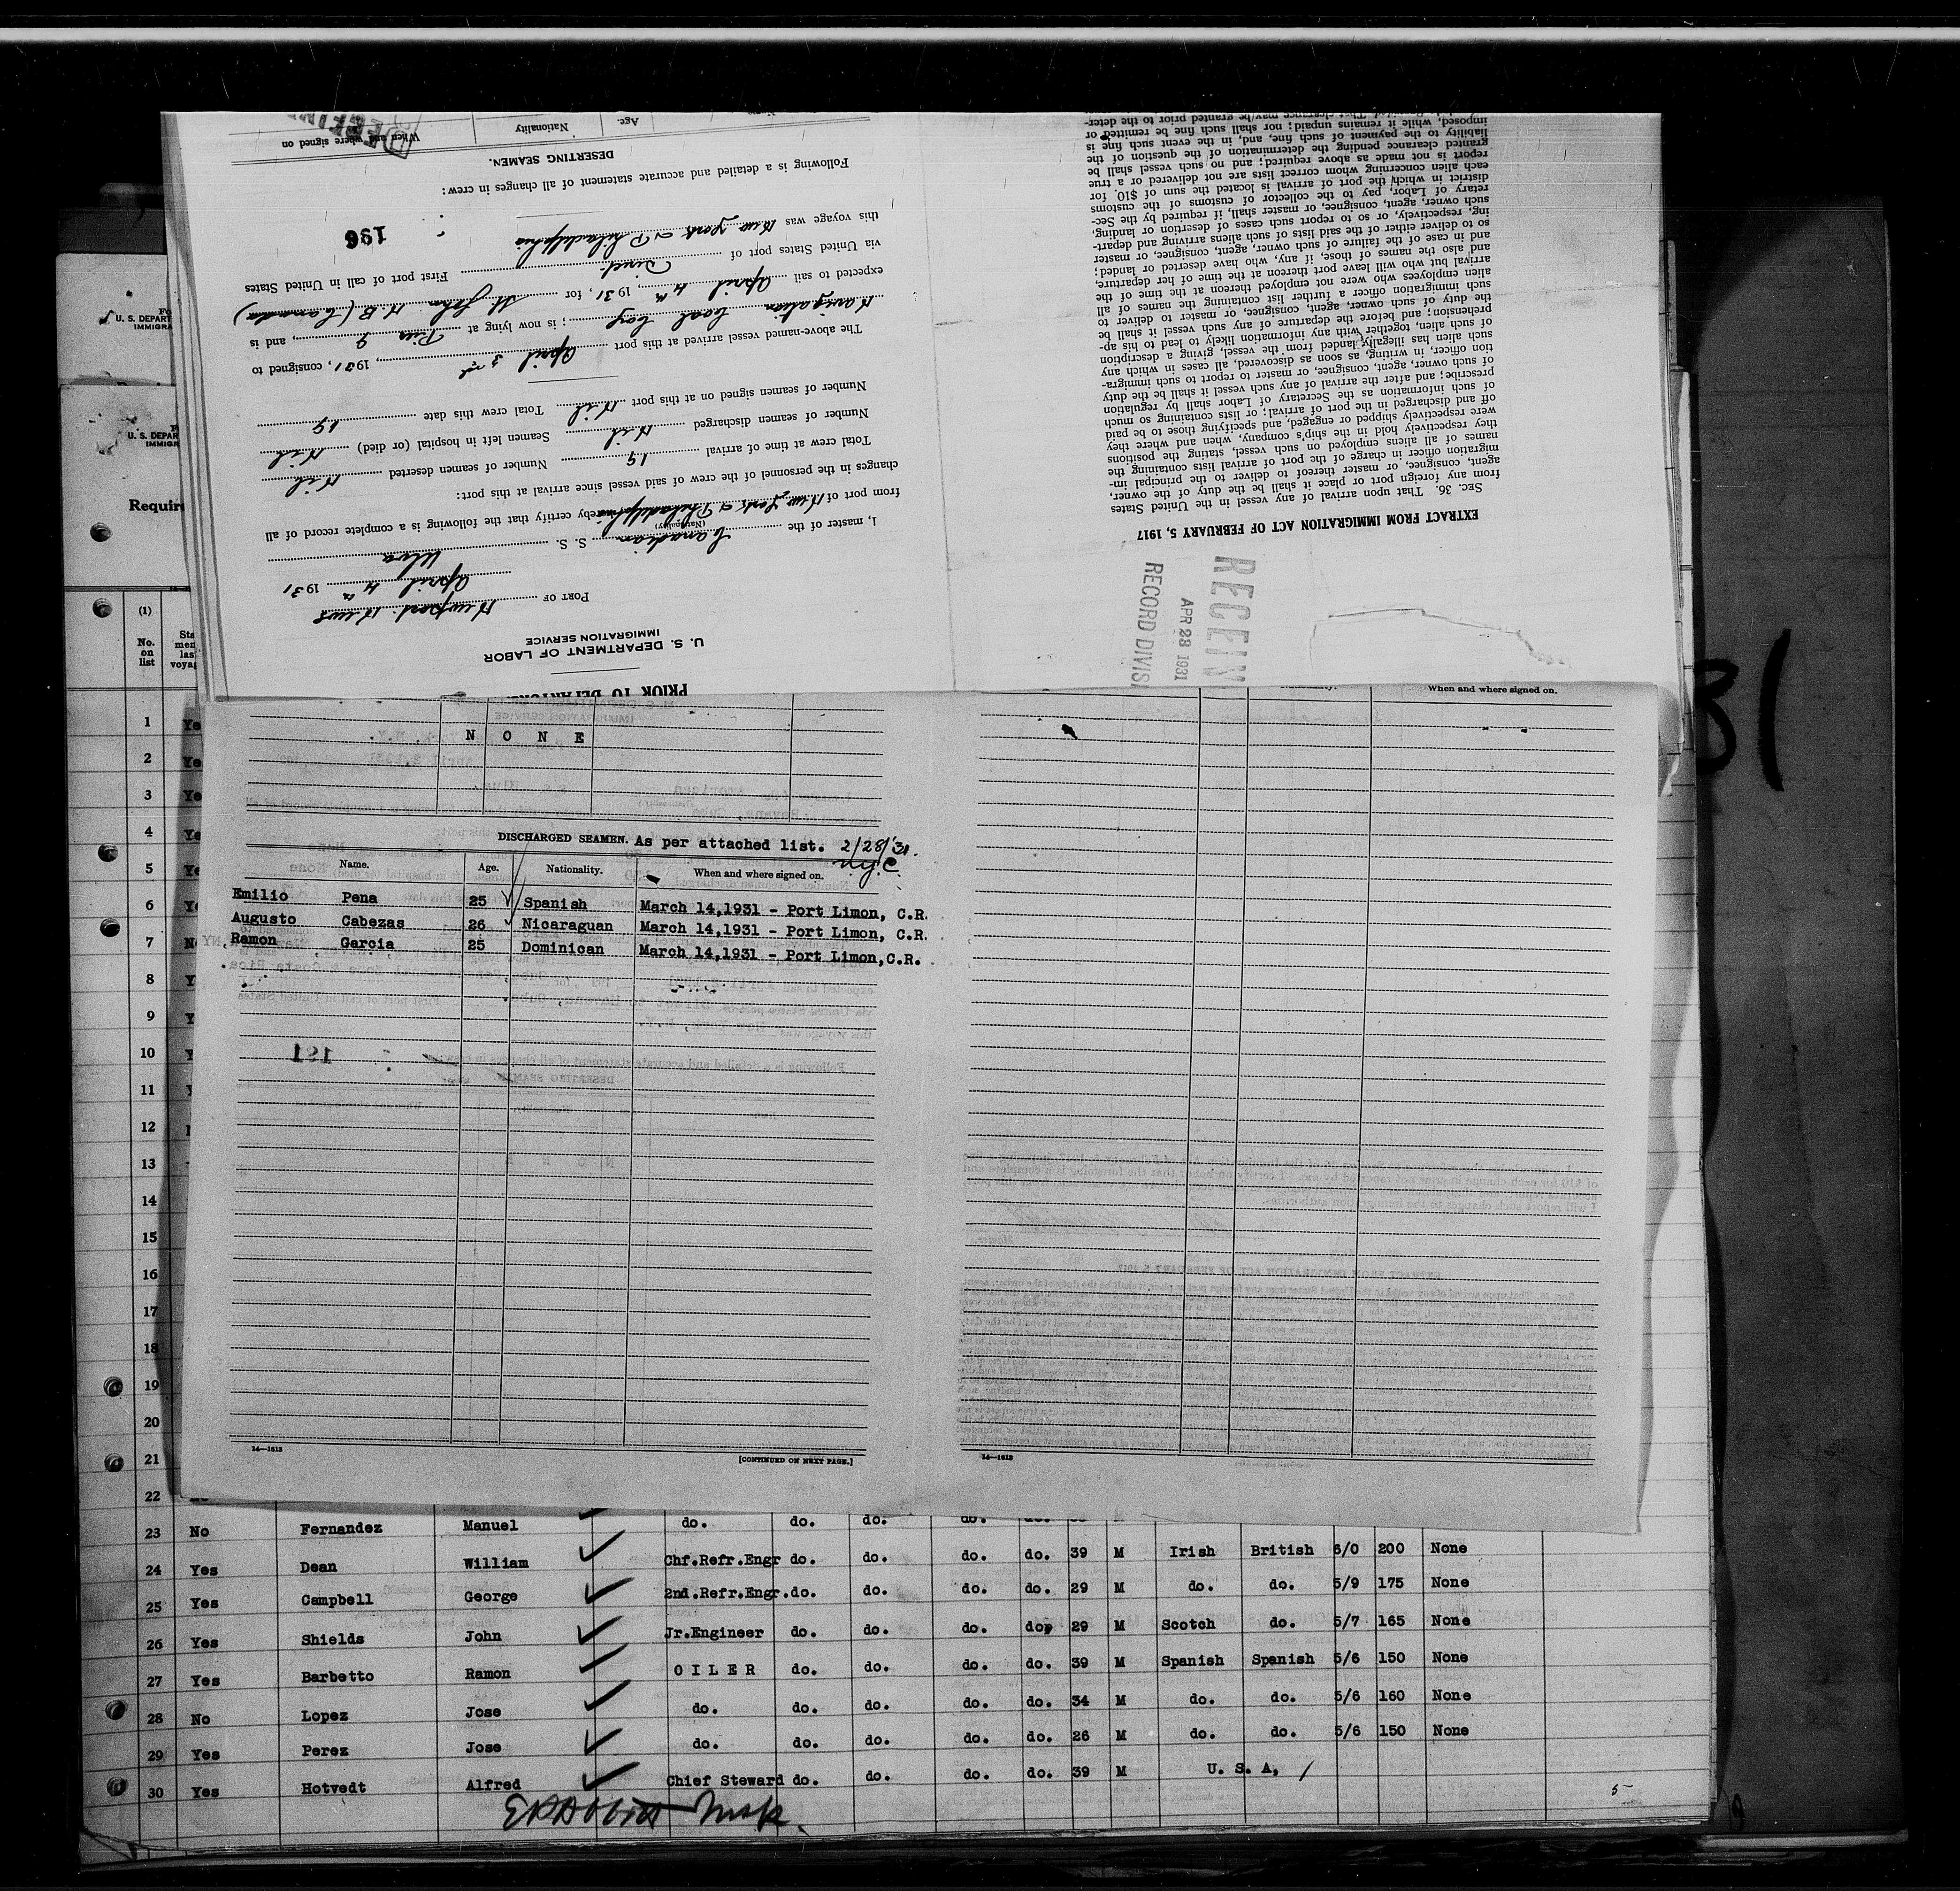 PRIOR TO DEPARTURE
U. S. DEPARTMENT OF LABOR
IMMIGRATION SERVICE
PORT OF Newport News
April 4th 1931
I, master of the Canadian S. S. Ulva
(Nationality)
from port of New York & Philadelphia hereby certify that the following is a complete record of all
changes in the personnel of the crew of said vessel since arrival at this port:
Total crew at time of arrival 19 Number of seamen deserted Nil
Number of seamen discharged Nil Seamen left in hospital (or died) Nil
Number of seamen signed on at this port Nil Total crew this date 19
The above-named vessel arrived at this port April 3rd, 1931, consigned to
Navigation Coal Corp; is now lying at Pier 9, and is
expected to sail April 4th, 1931, for St John N.B (Canada)
via United States port of Direct First port of call in United States
this voyage was New York & Philadelphia
196
Following is a detailed and accurate statement of all changes in crew:
DESERTING SEAMEN.
Name Age. Nationality When and where signed on
RECEIV
APR 28 1931
RECORD DIVISI
EXTRACT FROM IMMIGRATION ACT OF FEBRUARY 5, 1917
SEC. 36. That upon arrival of any vessel in the United States
from any foreign port or place it shall be the duty of the owner,
agent, consignee, or master thereof to deliver to the principal im-
migration officer in charge of the port of arrival lists containing the
names of all aliens employed on such vessel, stating the positions
they respectively hold in the ship's company, when and where they
were respectively shipped or engaged, and specifying those to be paid
off and discharged in the port of arrival; or lists containing so much
of such information as the Secretary of Labor shall by regulation
prescribe; and after the arrival of any such vessel it shall be the duty
of such owner, agent, consignee, or master to report to such immigra-
tion officer, in writing, as soon as discovered, all cases in which any
such alien has illegally landed from the vessel, giving a description
of such alien, together with any information likely to lead to his ap-
prehension; and before the departure of any such vessel it shall be
the duty of such owner, agent, consignee, or master to deliver to
such immigration officer a further list containing the names of all
alien employees who were not employed thereon at the time of the
arrival but who will leave port thereon at the time of her departure,
and also the names of those, if any, who have deserted or landed;
and in case of the failure of such owner, agent, consignee, or master
so to deliver either of the said lists of such aliens arriving and depart-
ing, respectively, or so to report such cases of desertion or landing,
such owner, agent, consignee, or master shall, if required by the Sec-
retary of Labor, pay to the collector of customs of the customs
district in which the port of arrival is located the sum of $10. for
each alien concerning whom correct lists are not delivered or a true
report is not made as above required; and no such vessel shall be
granted clearance pending the determination of the question of the
liability to the payment of such fine, and, in the event such fine is
imposed, while it remains unpaid; nor shall such fine be remitted or
U. S. DEPART
IMMIGRA
U. S. DEPAR
IMMIGR
Require
(1)
No.
on
list
31
When and where signed on.
N O N E
DISCHARGED SEAMEN. As per attached list. 2/28/31.
Name. Age. Nationality. When and where signed on.
Emilio Pena 25 Spanish March 14,1931 - Port Limon, C.R.
Augusto Cabezas 26 Nicaraguan March 14,1931 - Port Limon, C.R.
Ramon Garcia 25 Dominican March 14,1931 - Port Limon,C.R.
181
14—1613
[CONTINUED ON NEXT PAGE.]
14—1613
1
2
3
4
5
6
7
8
9
10
11
12
13
14
15
16
17
18
19
20
21
22
23 No Fernandez Manuel do. do. do. do.
24 Yes Dean William Chf.Refr.Engr do. do. do. do. 39 M Irish British 6/0 200 None
25 Yes Campbell George 2nd.Refr.Engr. do. do. do. do. 29 M do. do. 5/9 175 None
26 Yes Shields John Jr.Engineer do. do. do. do 29 M Scotch do. 5/7 165 None
27 Yes Barbetto Ramon O I L E R do. do. do. do. 39 M Spanish Spanish 5/6 150 None
28 No Lopez Jose do. do. do. do. do. 34 M do. do. 5/6 160 None
29 Yes Perez Jose do. do. do. do. do. 26 M do. do. 5/6 150 None
30 Yes Hotvedt Alfred Chief Steward do. do. do. do. 39 M U. S. A,
5